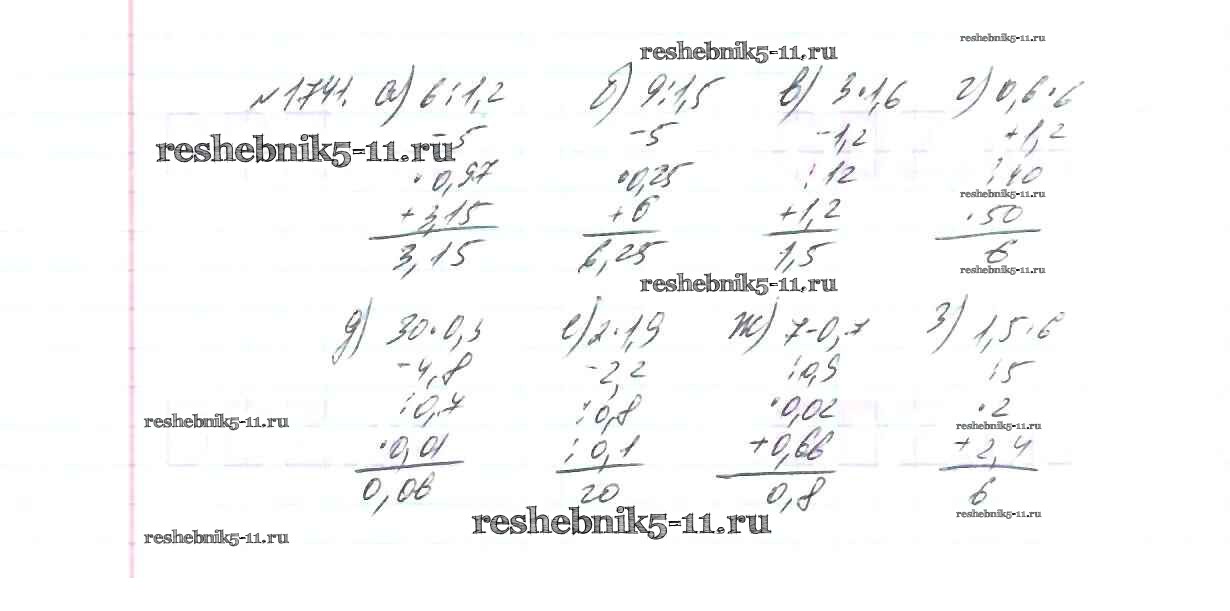 reshebnik5-11.ru
reshebnik5-11.ru
№1741. а) 6:1,2 б) 9:1,5 в) 3·1,6 г) 0,6·6
-5 -5 -1,2 +1,2
reshebnik5-11.ru
·0,97 ·0,25 :12 :40
reshebnik5-11.ru
+3,15 +6 +1,2 ·50
3,15 6,25 1,5 6
reshebnik5-11.ru
reshebnik5-11.ru
д) 30·0,3 е) 2·1,9 ж) 7-0,7 з) 1,5·6
-4,8 -2,2 :0,9 :5
:0,7 :0,8 ·0,02 ·2
reshebnik5-11.ru
reshebnik5-11.ru
·0,01 :0,1 +0,66 +2,4
0,06 20 0,8 6
reshebnik5-11.ru
reshebnik5-11.ru
reshebnik5-11.ru